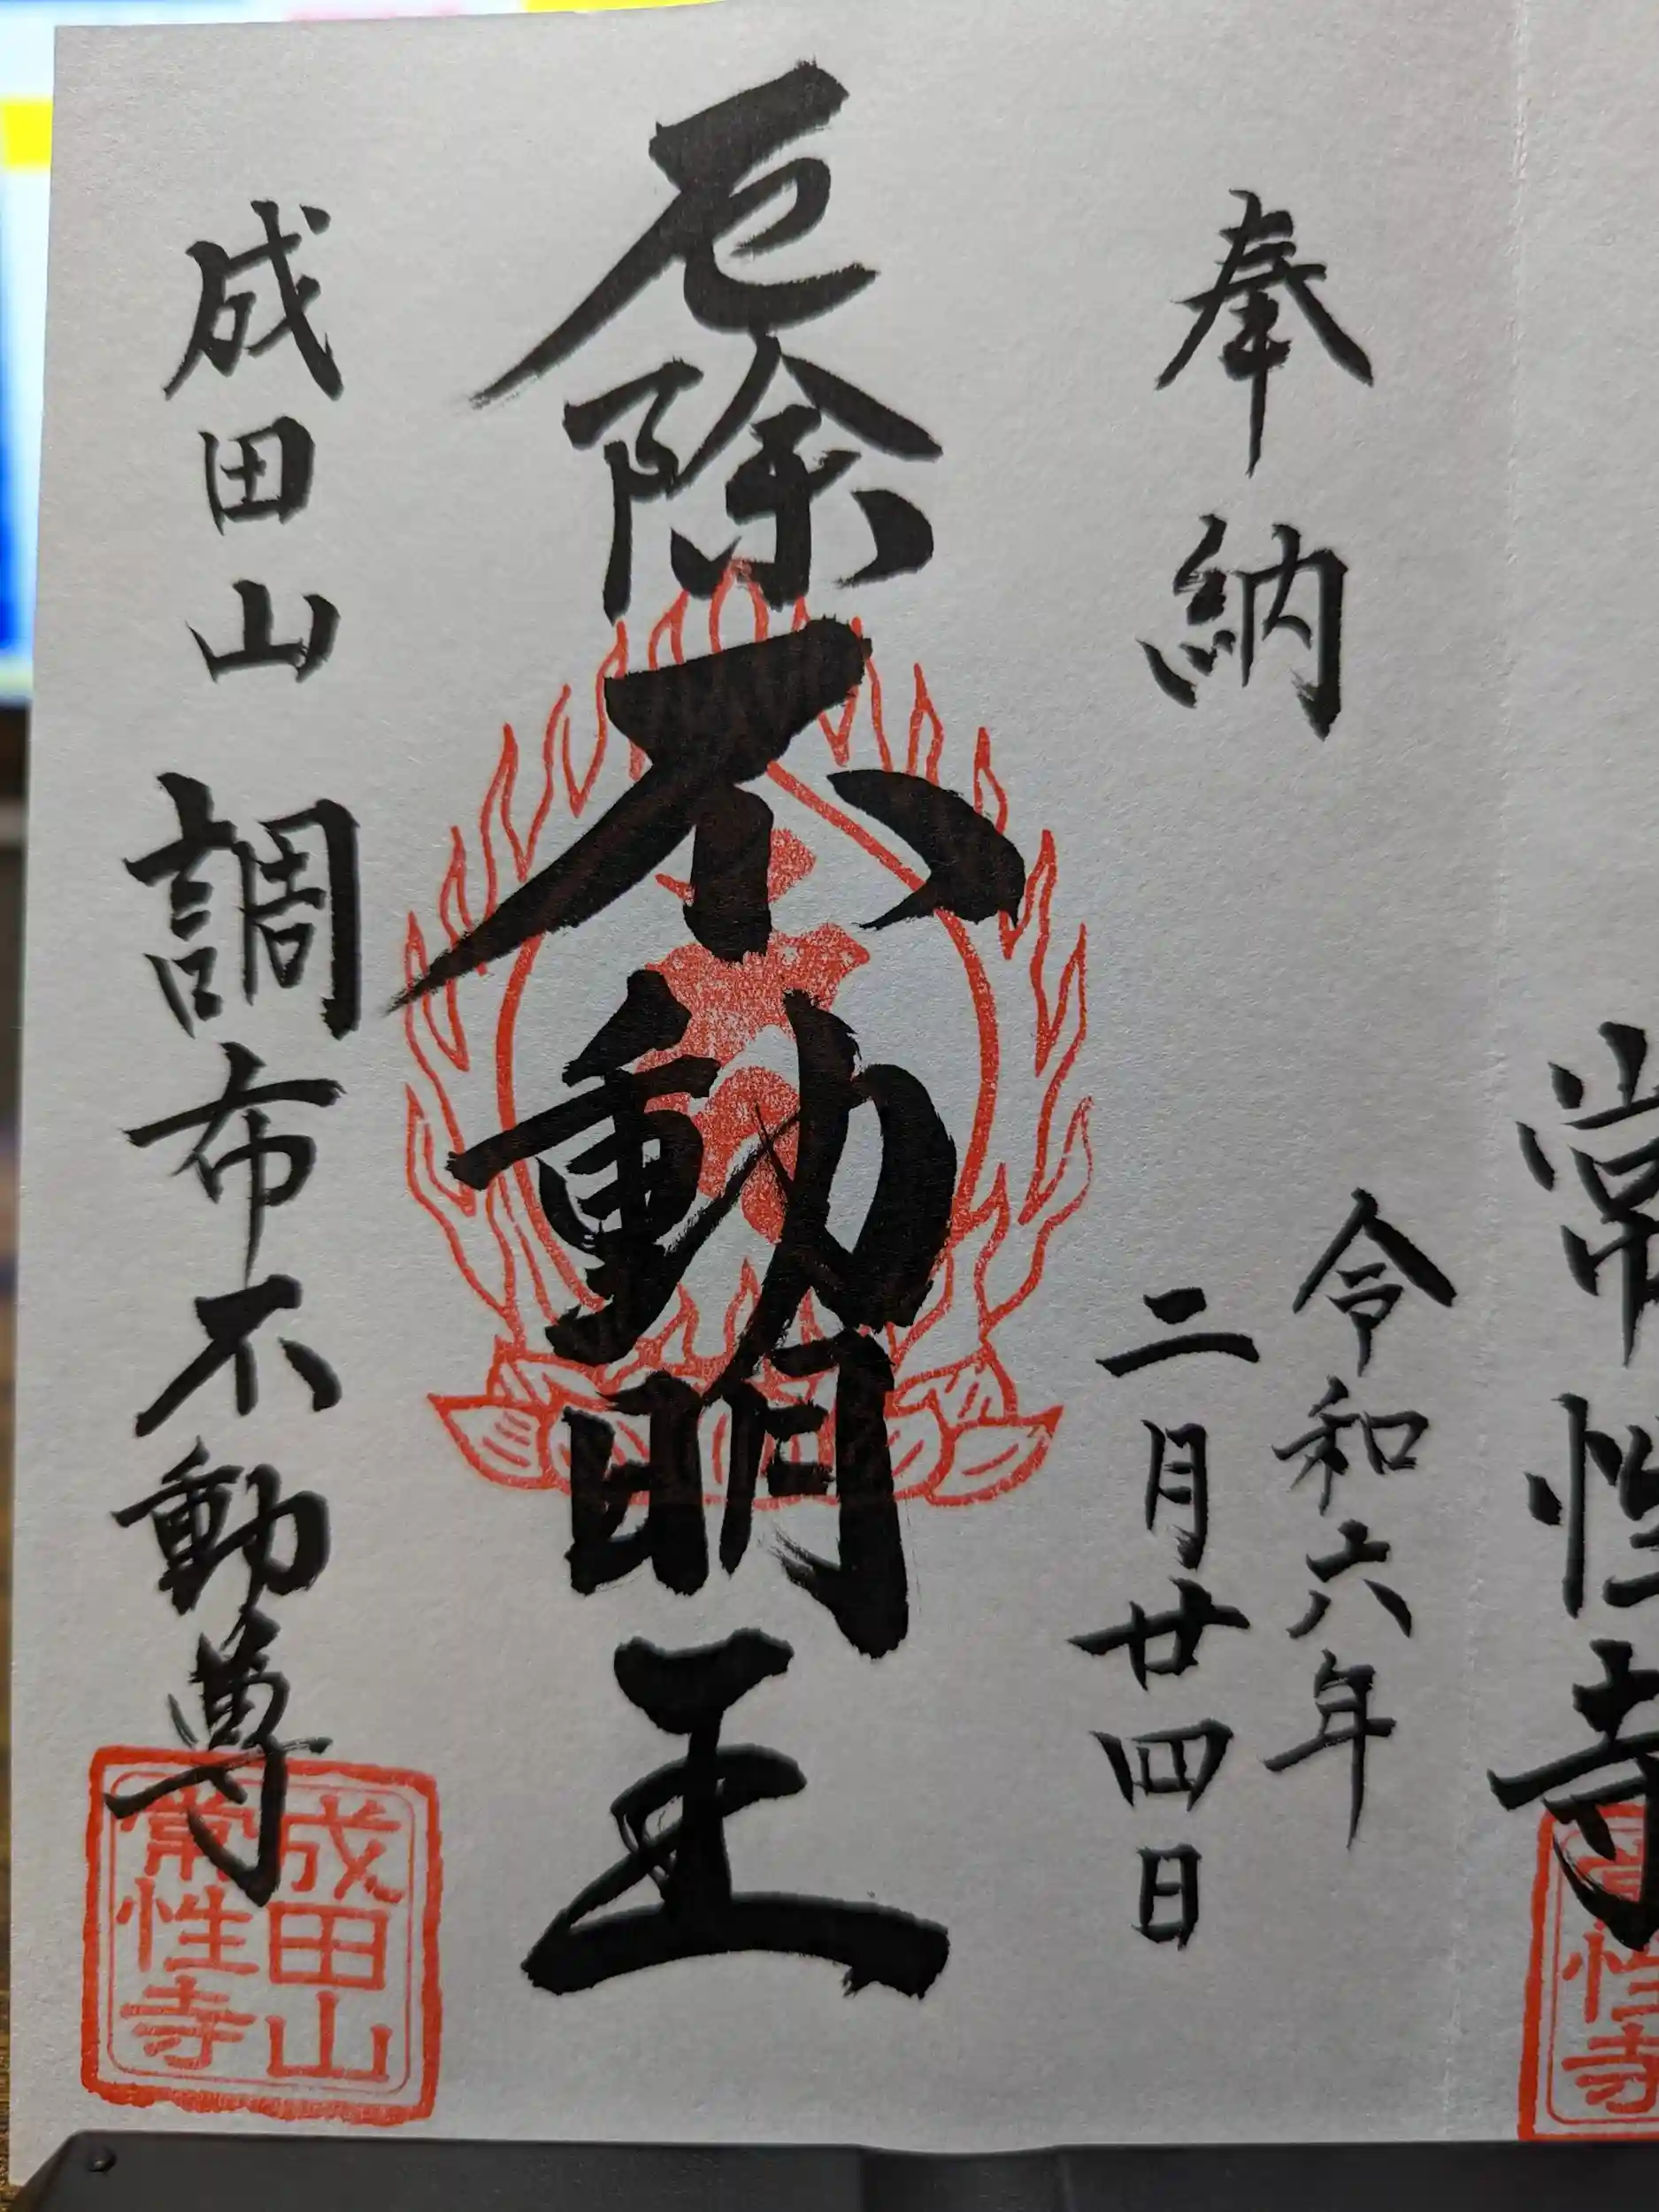 常性寺
奉納
令和六年
二月廿四日
厄除不動明王
成田山 調布不動尊
成田山
常性寺
性寺